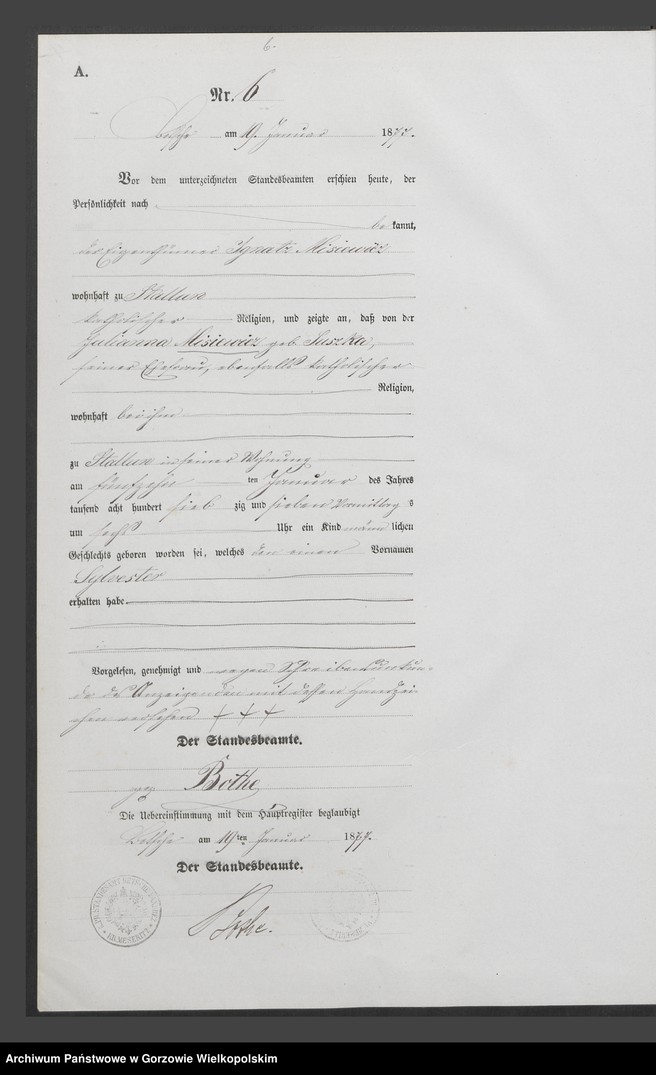 6.
A.
Nr. 6
Betsche am 19. Januar 1877.
Vor dem unterzeichneten Standesbeamten erschien heute, der
Persönlichkeit nach
be kannt,
der Eigenthümer Ignatz Misiewicz
wohnhaft zu Stallun
katholischer Religion, und zeigte an, daß von der
Julianna Misiewicz geb. Suszka,
seiner Ehefrau, ebenfalls katholischer
Religion,
wohnhaft bei ihm
zu Stallun in seiner Wohnung
am fünfzehn ten Januar des Jahres
tausend acht hundert sieb zig und sieben Vormittag s
um sechs Uhr ein Kind männ lichen
Geschlechts geboren worden sei, welches den einen Vornamen
Sylvester
erhalten habe.
Vorgelesen, genehmigt und wegen Schreibensunkun-
de des Anzeigenden mit dessen Handzei-
chen versehen + + +
Der Standesbeamte.
gez. Böthe
Die Uebereinstimmung mit dem Hauptregister beglaubigt
Betsche am 19ten Januar 1877.
Der Standesbeamte.
Böthe.
KR. MESERITZ
Archiwum Państwowe w Gorzowie Wielkopolskim